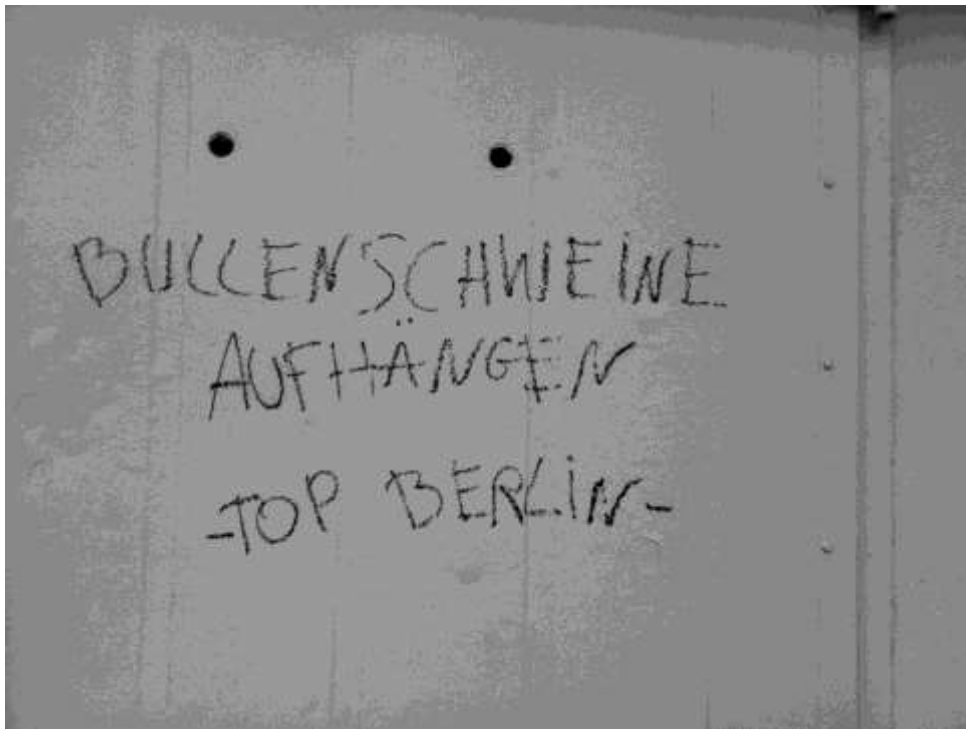 BULLENSCHWEINE
AUFHÄNGEN
-TOP BERLIN-